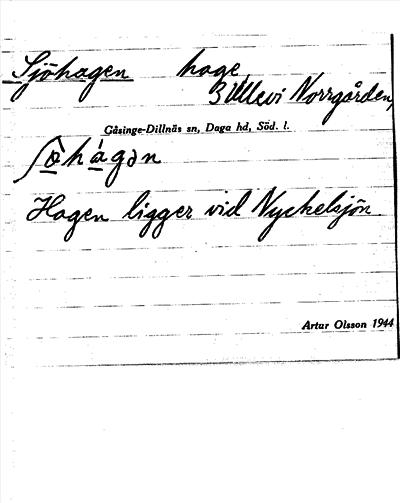 Sjöhagen hage,
3 Ullevi Norrgården,
Gåsinge-Dillnäs sn, Daga hd, Söd. l.
ʃö̀hágən
Hagen ligger vid Nyckelsjön.
Artur Olsson 1944